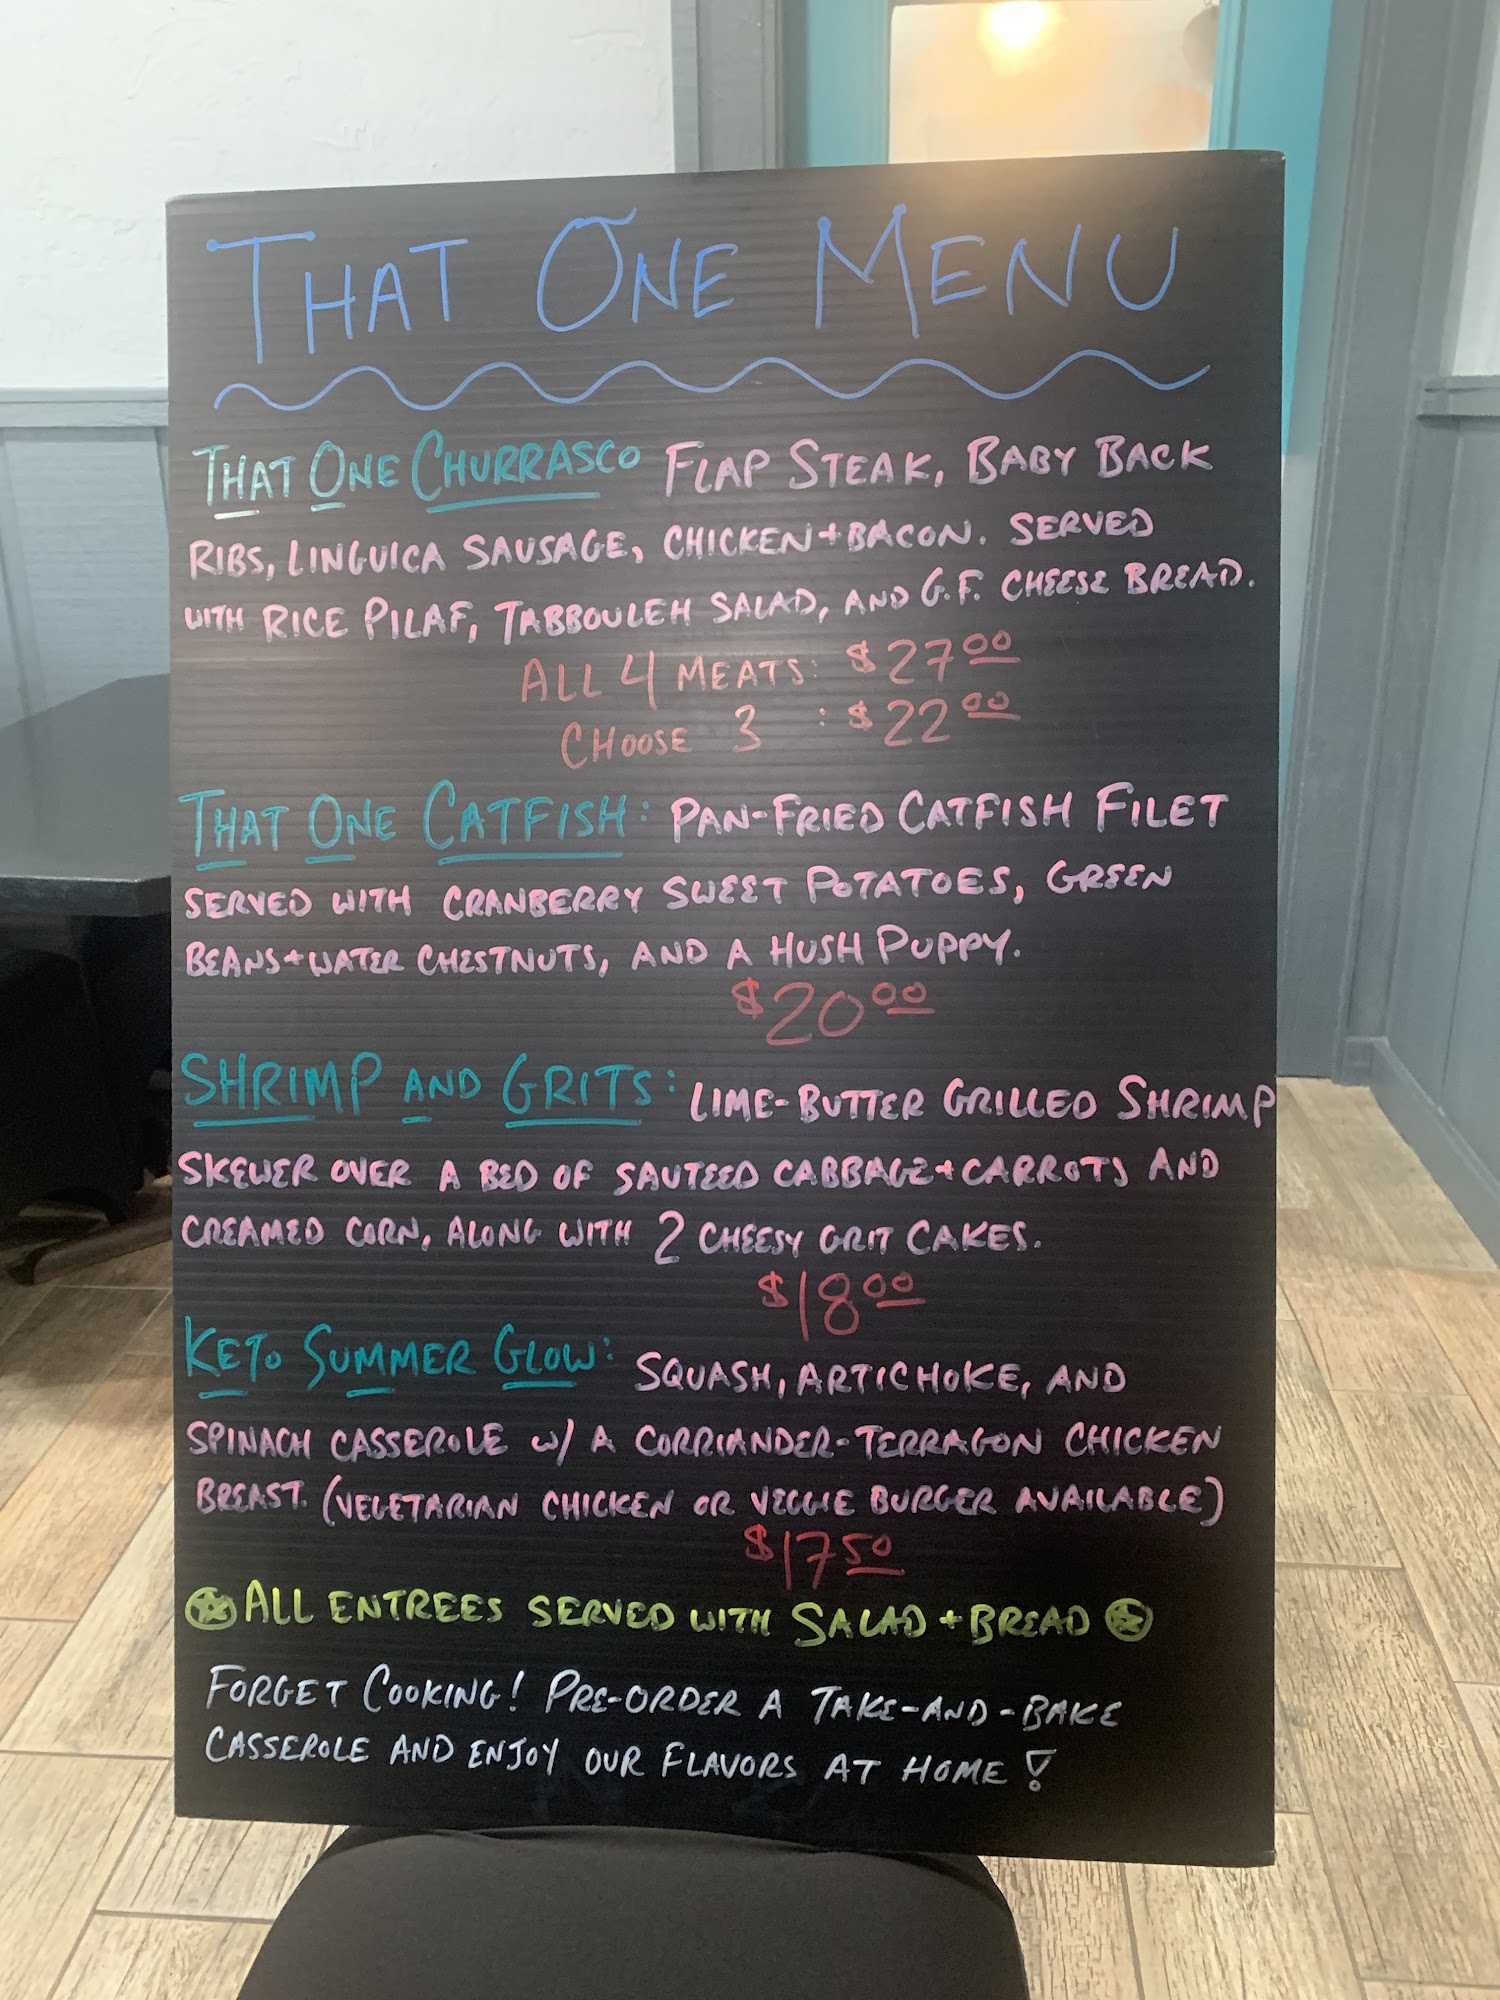 THAT ONE MENU
THAT ONE CHURRASCO FLAP STEAK, BABY BACK
RIBS, LINGUICA SAUSAGE, CHICKEN + BACON. SERVED
WITH RICE PILAF, TABBOULEH SALAD, AND G.F. CHEESE BREAD.
ALL 4 MEATS: $27.00
CHOOSE 3 : $22.00
THAT ONE CATFISH: PAN-FRIED CATFISH FILET
SERVED WITH CRANBERRY SWEET POTATOES, GREEN
BEANS + WATER CHESTNUTS, AND A HUSH PUPPY.
$20.00
SHRIMP AND GRITS: LIME-BUTTER GRILLED SHRIMP
SKEWER OVER A BED OF SAUTEED CABBAGE + CARROTS AND
CREAMED CORN, ALONG WITH 2 CHEESY GRIT CAKES.
$18.00
KETO SUMMER GLOW: SQUASH, ARTICHOKE, AND
SPINACH CASSEROLE W/ A CORRIANDER-TERRAGON CHICKEN
BREAST. (VEGETARIAN CHICKEN OR VEGGIE BURGER AVAILABLE)
$17.50
ALL ENTREES SERVED WITH SALAD + BREAD
FORGET COOKING! PRE-ORDER A TAKE-AND-BAKE
CASSEROLE AND ENJOY OUR FLAVORS AT HOME!